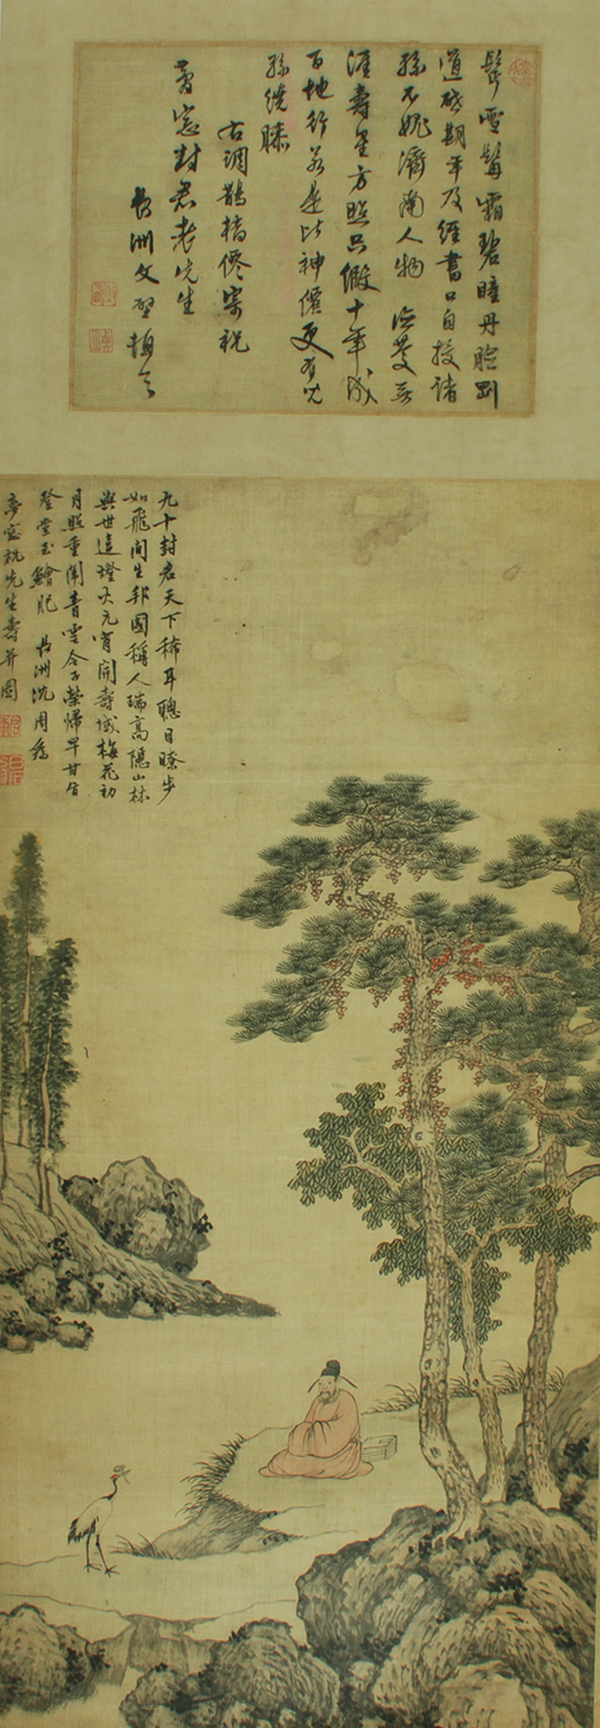 髩雪髯霜碧瞳丹臉剛
道破期年及經書口自授諸
孫不媿濟南人物
涯壽星方照只假十年成
百地行若是比神僊更有兒
孫繞膝
古調鵲橋僊寄祝
夢窓封君老先生
長洲文璧頓首
九十封君天下稀耳聰目瞭步
如飛間生邦國稱人瑞高隱山林
與世違燈火元宵開壽域梅花初
月照重闈青雲令子榮歸早甘旨
登堂玉鱠肥 長洲沈周為
夢窓祝先生壽并圖